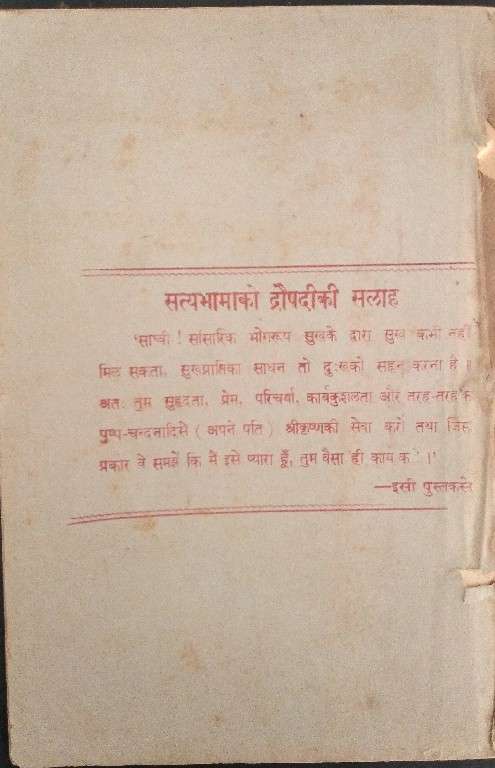 सत्यभामाको द्रौपदीकी सलाह
'साध्वी ! सांसारिक भोगरूप सुखके द्वारा सुख कभी नहीं
मिल सकता, सुखप्राप्तिका साधन तो दुःखको सहन करना है ।
अतः तुम सुहृदता, प्रेम, परिचर्या, कार्यकुशलता और तरह-तरहके
पुष्प-चन्दनादिसे ( अपने पति ) श्रीकृष्णकी सेवा करो तथा जिस
प्रकार वे समझें कि मैं इसे प्यारा हूँ, तुम वैसा ही
—इसी पुस्तकसे